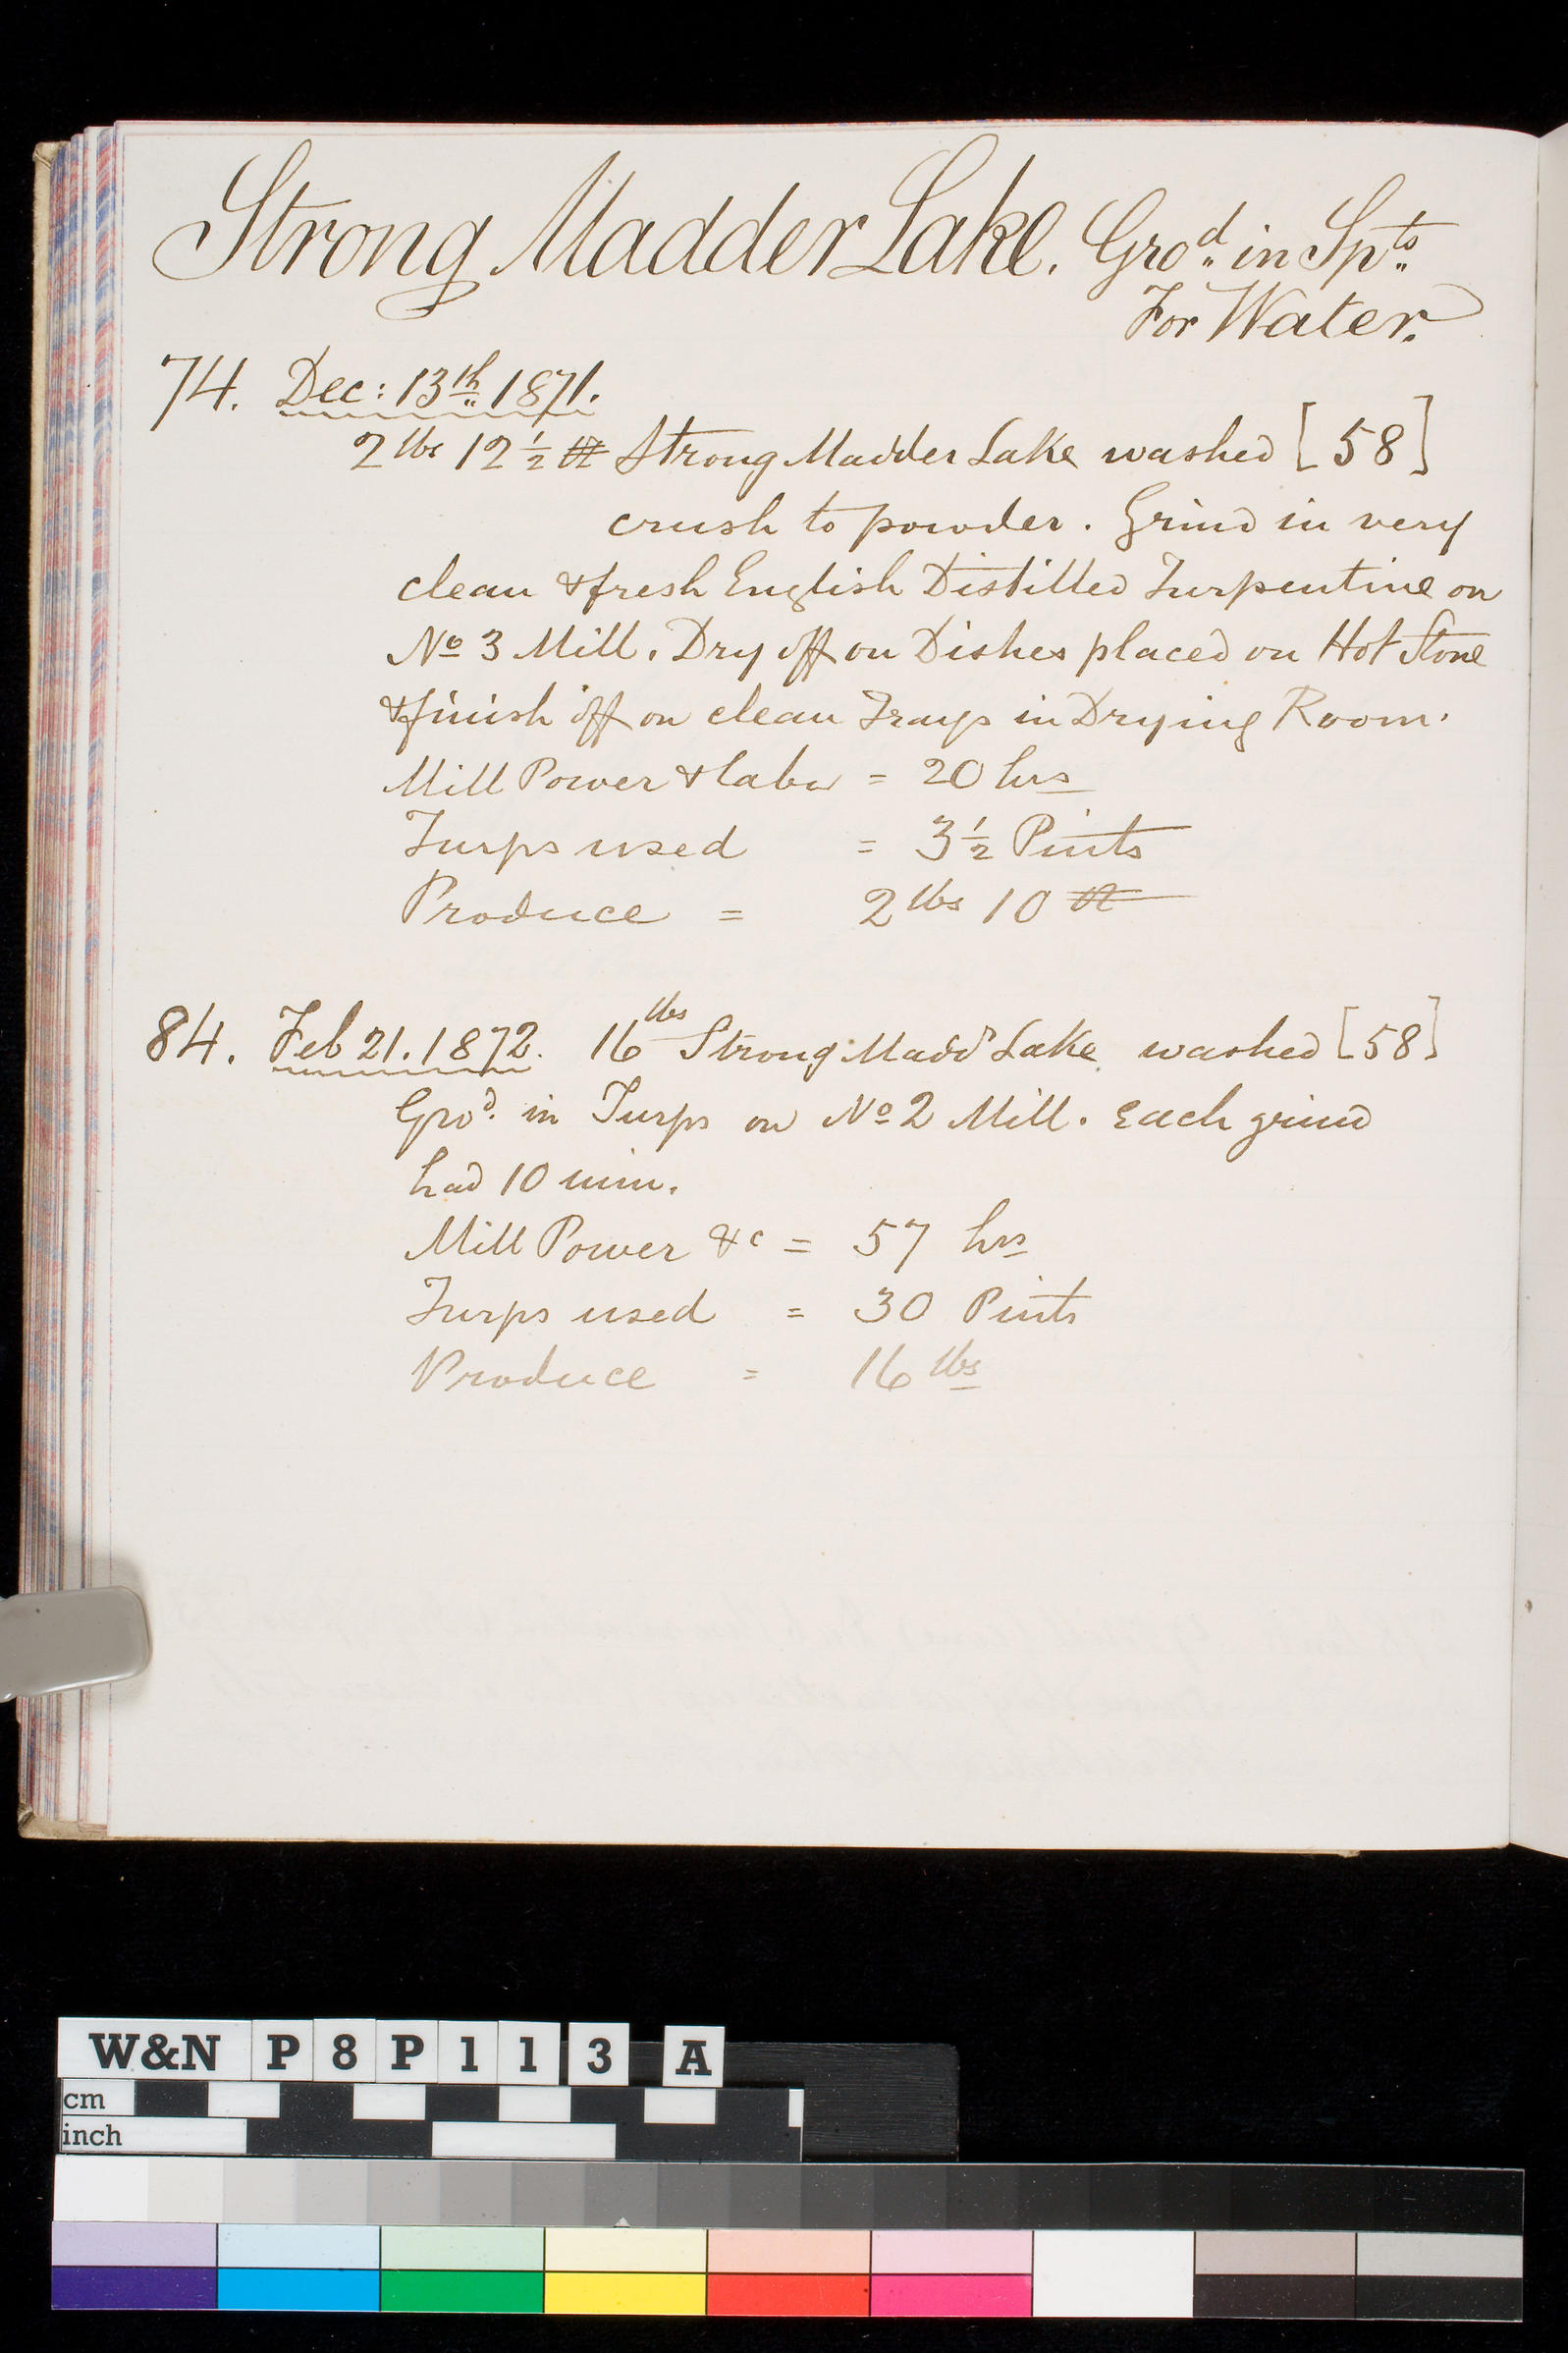 Strong Madder Lake. Gro.d in Sp.ts
For Water.
74. Dec: 13th 1871.
2 lbs 12 1/2 oz Strong Madder Lake washed [58]
crush to powder. Grind in very
clean & fresh English Distilled Turpentine on
No 3 Mill. Dry off on Dishes placed on Hot Stone
& finish off on clean Trays in Drying Room.
Mill Power & labor = 20 hrs
Turps used = 3 1/2 Pints
Produce = 2 lbs 10 oz
84. Feb 21. 1872. 16 lbs Strong Madd.r Lake washed [58]
Gro.d in Turps on No 2 Mill. Each grind
had 10 min.
Mill Power &c = 57 hrs
Turps used = 30 Pints
Produce = 16 lbs
W&N P8P113A
cm
inch